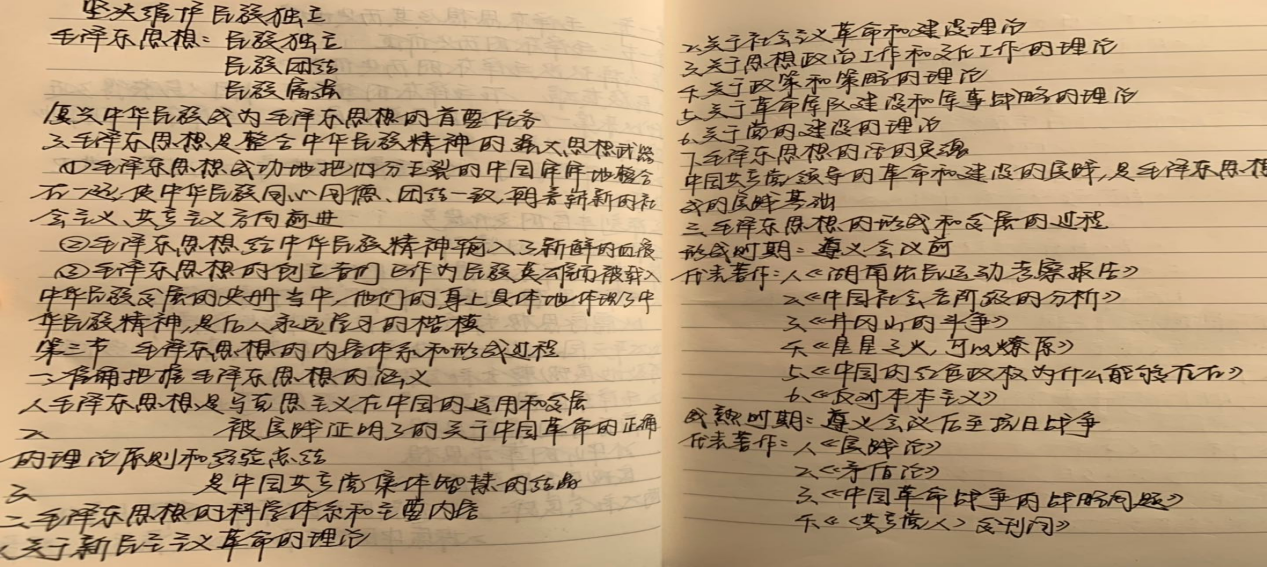 坚决维护民族独立
毛泽东思想：民族独立
民族团结
民族虏强
复兴中华民族成为毛泽东思想的首要任务
3.毛泽东思想是整合中华民族精神的强大思想武器
①毛泽东思想成功地把四分五裂的中国牢牢地整合
在一起，使中华民族同心同德、团结一致，朝着崭新的社
会主义、共产主义方向前进
②毛泽东思想给中华民族精神输入了新鲜的血液
③毛泽东思想的创立者们已作为民族英雄而被载入
中华民族发展的史册当中，他们的身上具体地体现了中
华民族精神，是后人永远学习的楷模
第三节 毛泽东思想的内容体系和形成过程
一、准确把握毛泽东思想的涵义
1.毛泽东思想是马克思主义在中国的运用和发展
2. 被实践证明了的关于中国革命的正确
的理论原则和经验总结
3. 是中国共产党集体智慧的结晶
二、毛泽东思想的科学体系和主要内容
1.关于新民主主义革命的理论
2.关于社会主义革命和建设理论
3.关于思想政治工作和文化工作的理论
4.关于政策和策略的理论
5.关于革命军队建设和军事战略的理论
6.关于党的建设的理论
7.毛泽东思想的活的灵魂
中国共产党领导的革命和建设的实践，是毛泽东思想
成的实践基础
三、毛泽东思想的形成和发展的过程
形成时期：遵义会议前
代表著作：1.《湖南农民运动考察报告》
2.《中国社会各阶级的分析》
3.《井冈山的斗争》
4.《星星之火，可以燎原》
5.《中国的红色政权为什么能够存在》
6.《反对本本主义》
成熟时期：遵义会议后至抗日战争
代表著作：1.《实践论》
2.《矛盾论》
3.《中国革命战争的战略问题》
4.《〈共产党人〉发刊词》